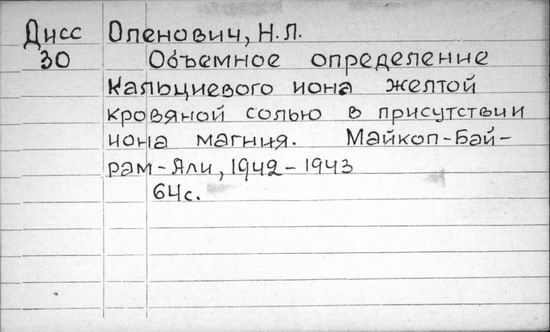 Дисс Оленович, Н.Л.
30 Объемное определение
Кальциевого иона желтой
кровяной солью в присутствии
иона магния. Майкоп-Бай-
рам-Али, 1942-1943
64с.